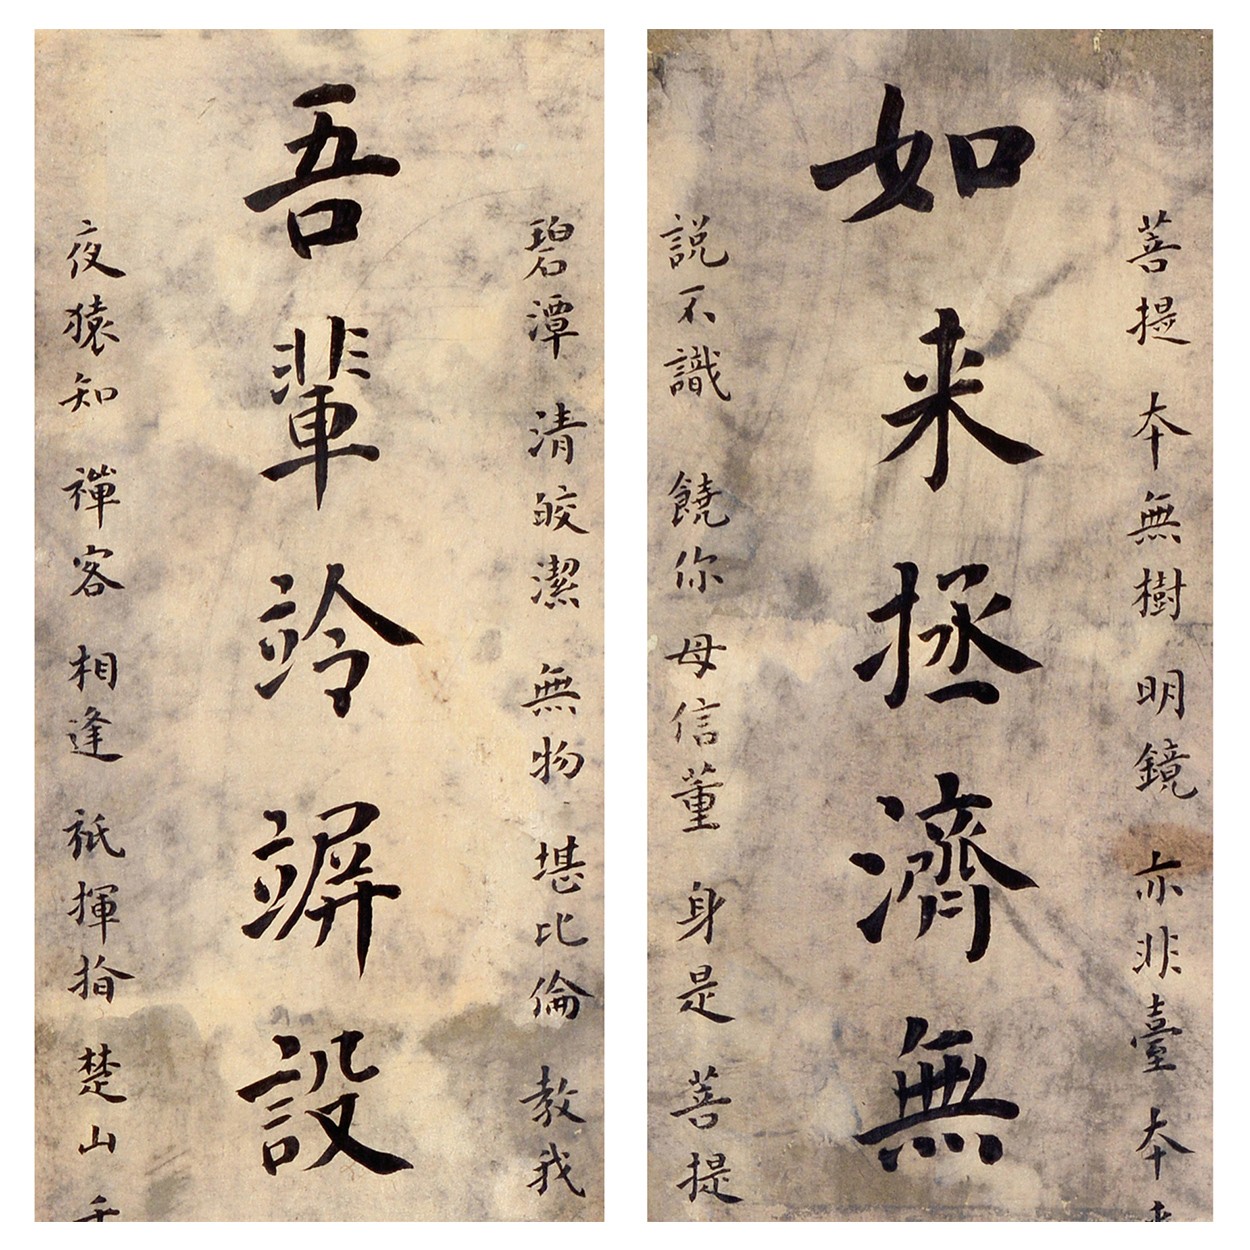 菩提 本無樹 明鏡 亦非臺 本来
如来拯濟無
説不識 饒你 母信董 身是 菩提
碧潭 清皎潔 無物 堪比倫 教我
吾輩竛竮設
夜猿知 禅客 相逢 祇揮指 楚山